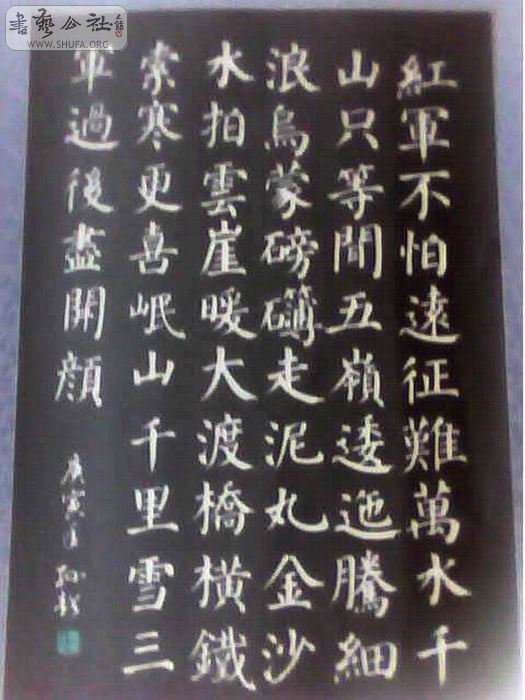 書藝公社
WWW.SHUFA.ORG
紅軍不怕遠征難萬水千
山只等閒五嶺逶迤騰細
浪烏蒙磅礴走泥丸金沙
水拍雲崖暖大渡橋橫鐵
索寒更喜岷山千里雪三
軍過後盡開顏
庚寅年